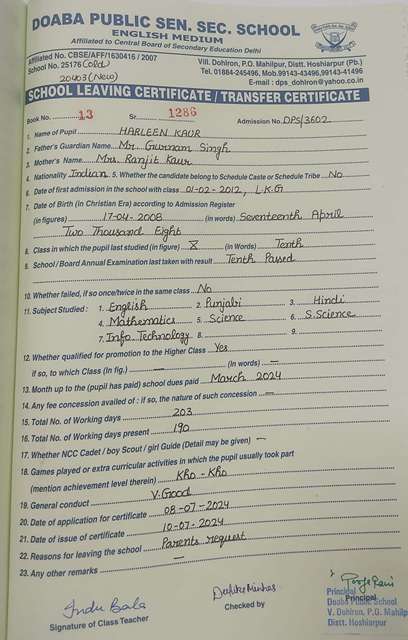 DOABA PUBLIC SEN. SEC. SCHOOL
ENGLISH MEDIUM
Affiliated to Central Board of Secondary Education Delhi
Affiliated No. CBSE/AFF/1630416 / 2007
School No. 25176 (Old)
20403 (New)
Vill. Dohlron, P.O. Mahilpur, Distt. Hoshiarpur (Pb.)
Tel. 01884-245496, Mob.99143-43496,99143-41496
E-mail : dps_dohlron@yahoo.co.in
SCHOOL LEAVING CERTIFICATE / TRANSFER CERTIFICATE
Book No. 13 Sr. 1286 Admission No. DPS/3602
1. Name of Pupil HARLEEN KAUR
2. Father's Guardian Name Mr. Gurnam Singh
3. Mother's Name Mrs. Ranjit Kaur
4. Nationality Indian 5. Whether the candidate belong to Schedule Caste or Schedule Tribe No
6. Date of first admission in the school with class 01-02-2012, L.K.G
7. Date of Birth (in Christian Era) according to Admission Register
(in figures) 17-04-2008 (in words) Seventeenth April
Two Thousand Eight
8. Class in which the pupil last studied (in figure) X (in Words) Tenth
9. School / Board Annual Examination last taken with result Tenth Passed
10. Whether failed, if so once/twice in the same class No
11. Subject Studied : 1. English 2. Punjabi 3. Hindi
4. Mathematics 5. Science 6. S.Science
7. Info. Technology 8. 9.
12. Whether qualified for promotion to the Higher Class Yes
if so, to which Class (In fig.) — (In words) —
13. Month up to the (pupil has paid) school dues paid March 2024
14. Any fee concession availed of : if so, the nature of such concession —
15. Total No. of Working days 203
16. Total No. of Working days present 190
17. Whether NCC Cadet / boy Scout / girl Guide (Detail may be given) —
18. Games played or extra curricular activities in which the pupil usually took part
(mention achievement level therein) Kho-Kho
19. General conduct V.Good
20. Date of application for certificate 08-07-2024
21. Date of issue of certificate 10-07-2024
22. Reasons for leaving the school Parents request
23. Any other remarks —
Indu Bala
Signature of Class Teacher
Checked by
Principal
Principal
Doaba Public School
V. Dohlron, P.O. Mahilp
Distt. Hoshiarpur